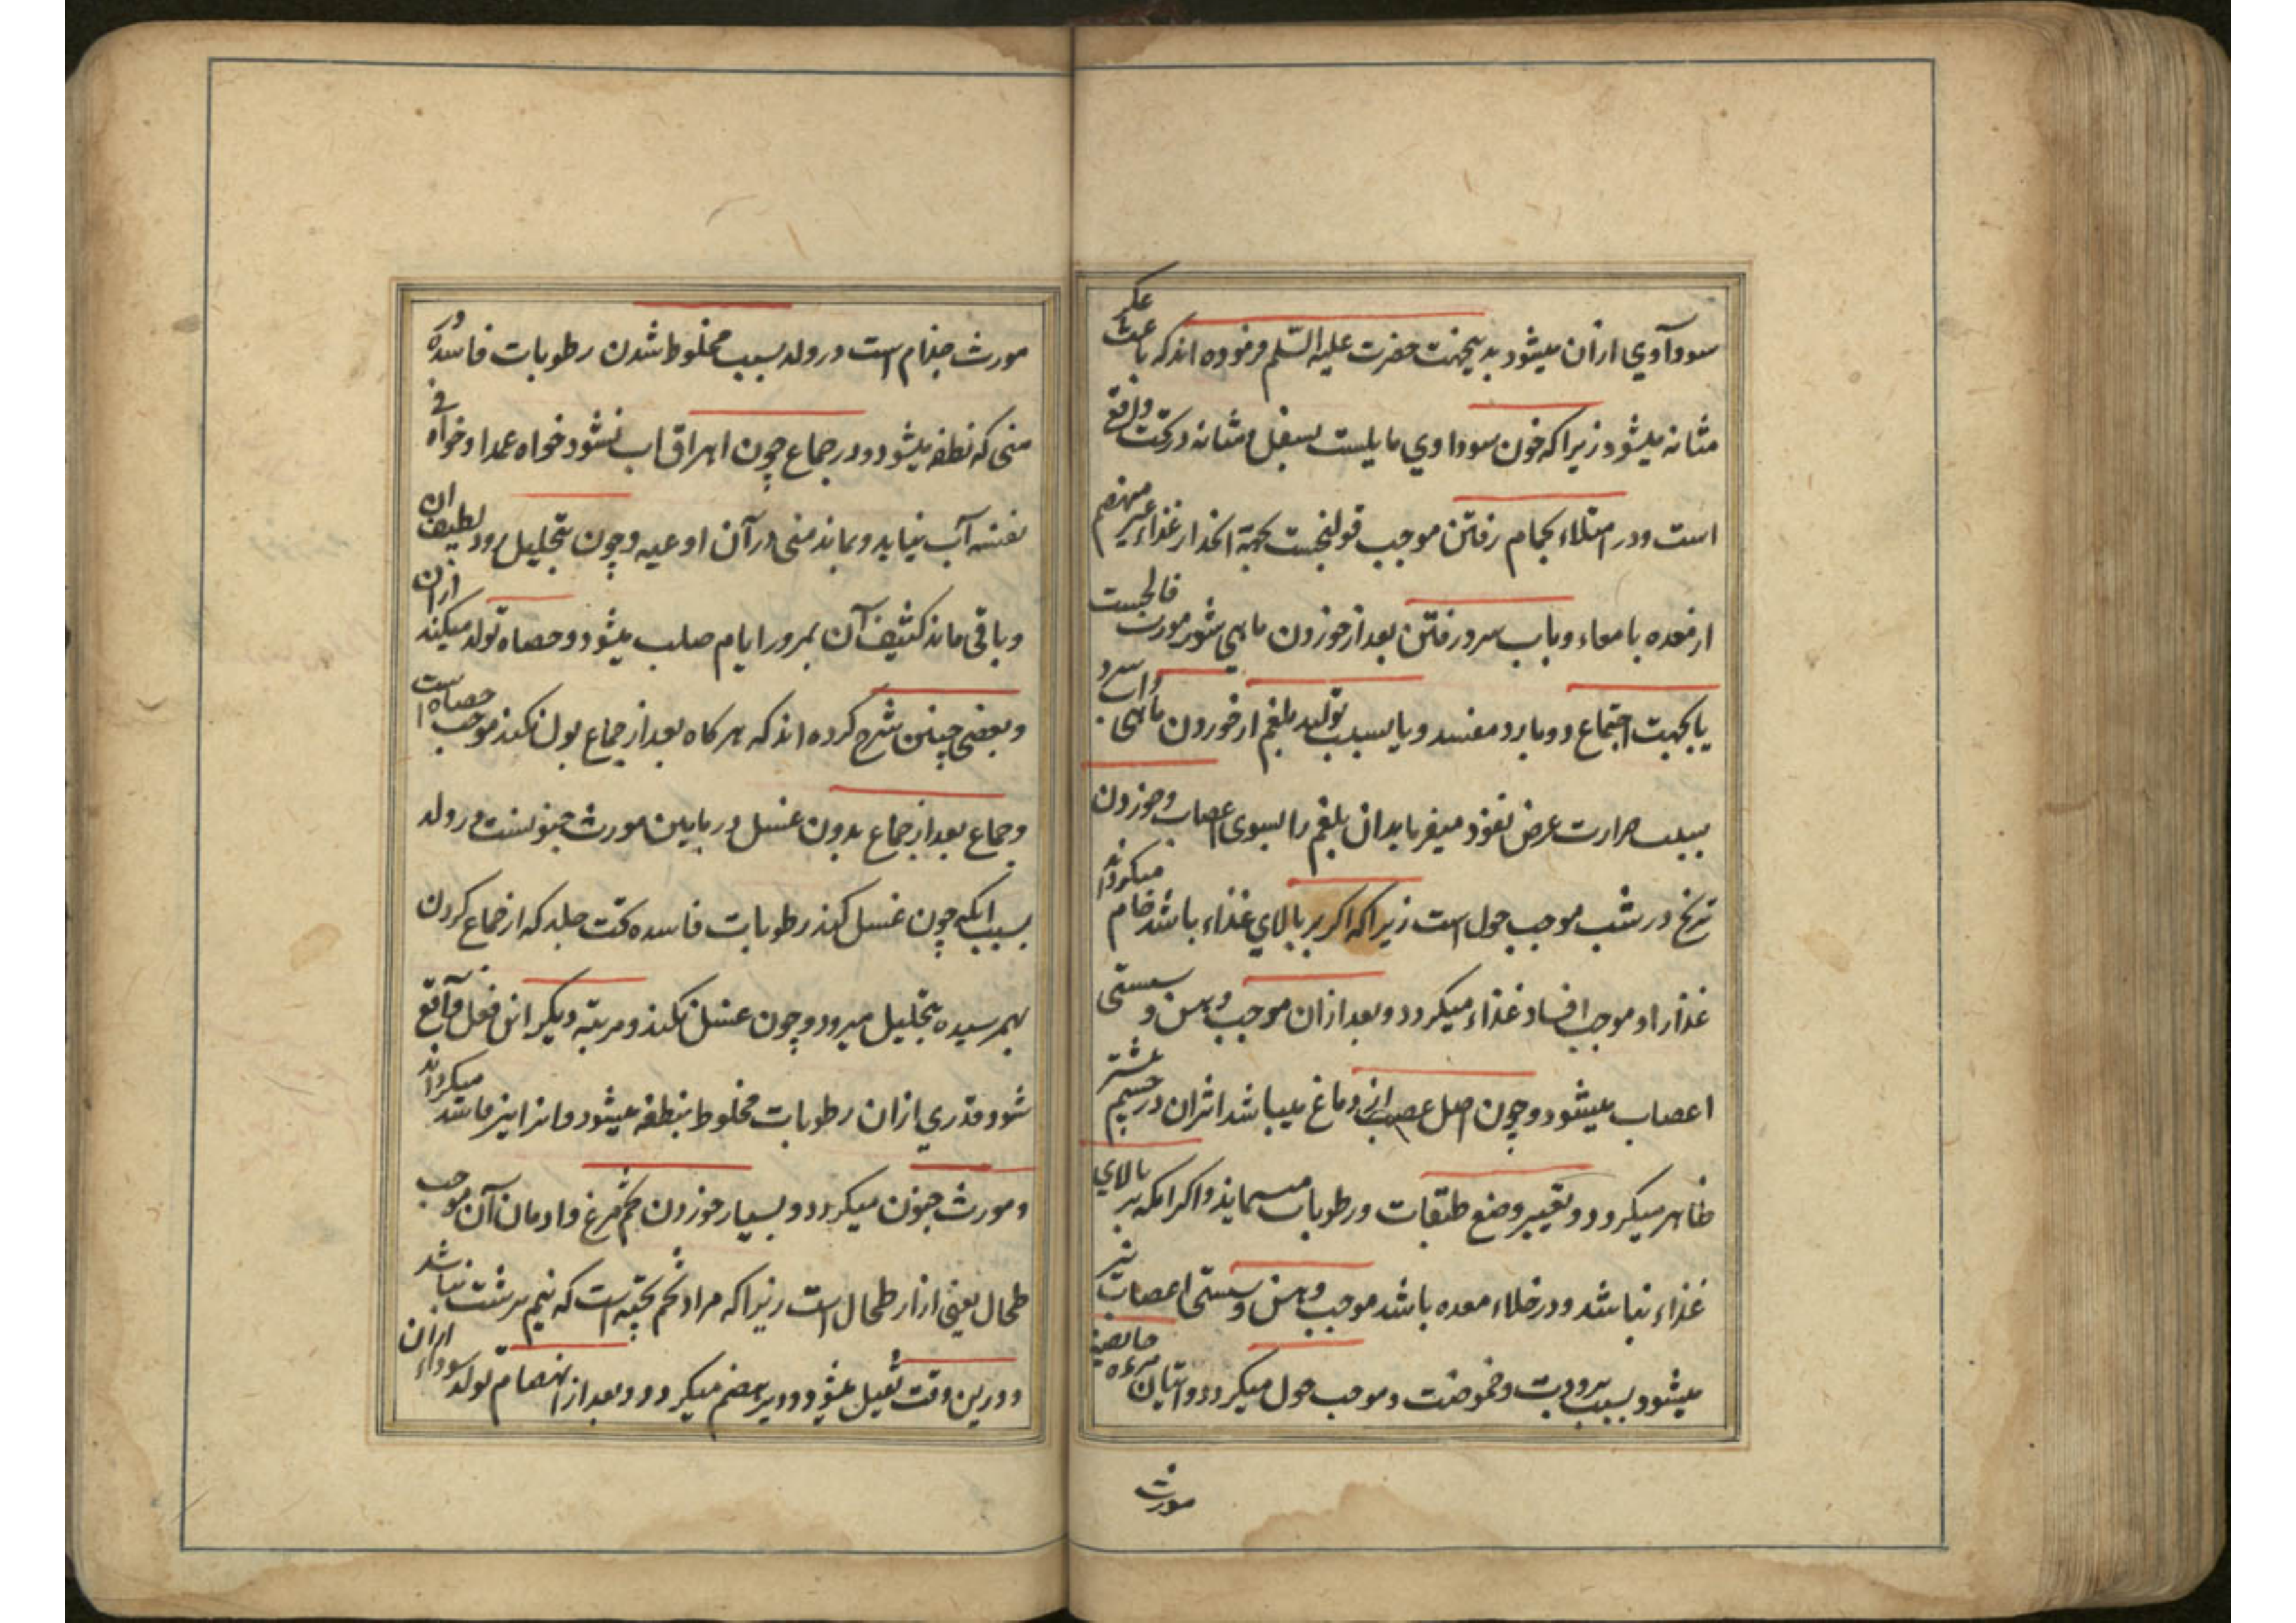 سوداآوي ازان میشود بدینجهت حضرت علیه السّلم فرموده اند که باعث عکر
مثانه میشود زیرا که خون سوداوي مایلست بسفل و مثانه در تحت واقع
است و در امتلاء بحمام رفتن موجب قولنجست بجهة انحدار غذاء غیر منهضم
از معده بامعاء و باب سرد رفتن بعد از خوردن ماهی شور مورث فالجست
یا بجهت اجتماع دو بارد مفسد و یا بسبب تولید بلغم از خوردن ماهی واب سرد
بسبب حرارت عرض نفوذ میفرماید ان بلغم را بسوی اعصاب و خوردن
ترنج در شب موجب حول است زیرا که اکر بر بالاي غذاء باشد خام میکرداند
غذا را و موجب افساد غذاء میکردد و بعد ازان موجب وهن و سستی
اعصاب میشود و چون اصل عصبانی دماغ میباشد اثران در چشم بیشتر
ظاهر میکردد و تغییر وضع طبقات و رطوبات مینماید و اکر انکه بر بالاي
غذاء نباشد و در خلاء معده باشد موجب وهن و سستی اعصاب نیز
میشود بسبب برودت و حموضت و موجب حول میکردد و اتیان مرءه حایضه
مورث
مورث جذام است در ولد بسبب مخلوط شدن رطوبات فاسده در
منی که نطفه میشود و در جماع چون اهراق اب نشود خواه عمدا و خواه في
نفسه آب نیاید و بماند منی در آن اوعیه و چون بتحلیل رود لطیف ان
و باقی ماند کثیف آن بمرور ایام صلب میشود و حصاه تولد میکند ازان
و بعضی چنین شرح کرده اند که هر کاه بعد از جماع بول نکند موجب حصاه است
و جماع بعد از جماع بدون غسل در مابین مورث جنونست در ولد
بسبب انکه چون غسل کند رطوبات فاسده تحت جلد که از جماع کردن
بهمرسیده بتحلیل میرود و چون غسل نکند و مرتبه دیکر این فعل واقع
شود قدري ازان رطوبات مخلوط بنطفه میشود و انرا نیز فاسد میکرداند
و مورث جنون میکردد و بسیار خوردن تخم مرغ و ادمان آن موجب
طحال یعنی ازار طحال است زیرا که مراد تخم پخته است که نیم برشت نباشد
و درین وقت ثقیل میشود و دیر هضم میکردد و بعد از انهضام تولد سوداء ازان